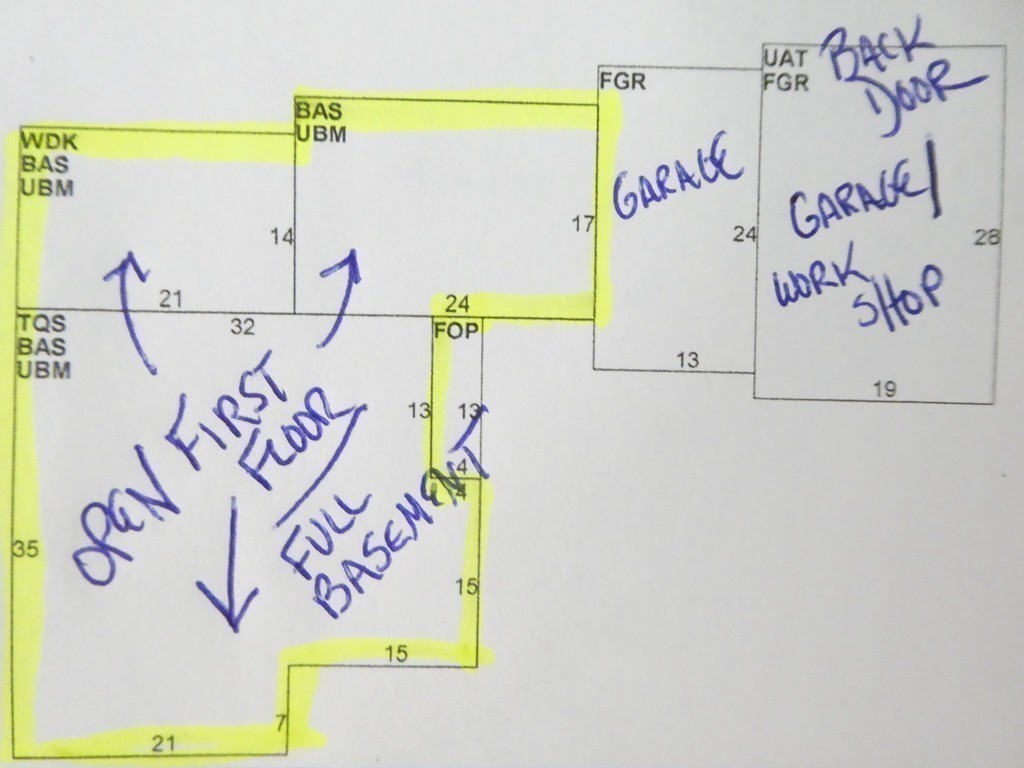 WDK
BAS
UBM
14
21
BAS
UBM
17
24
FGR
GARAGE
24
13
UAT
FGR
BACK
DOOR
GARAGE/
WORK
SHOP
28
19
32
TQS
BAS
UBM
FOP
13
13
4
4
OPEN FIRST
FLOOR
FULL
BASEMENT
35
15
15
7
21